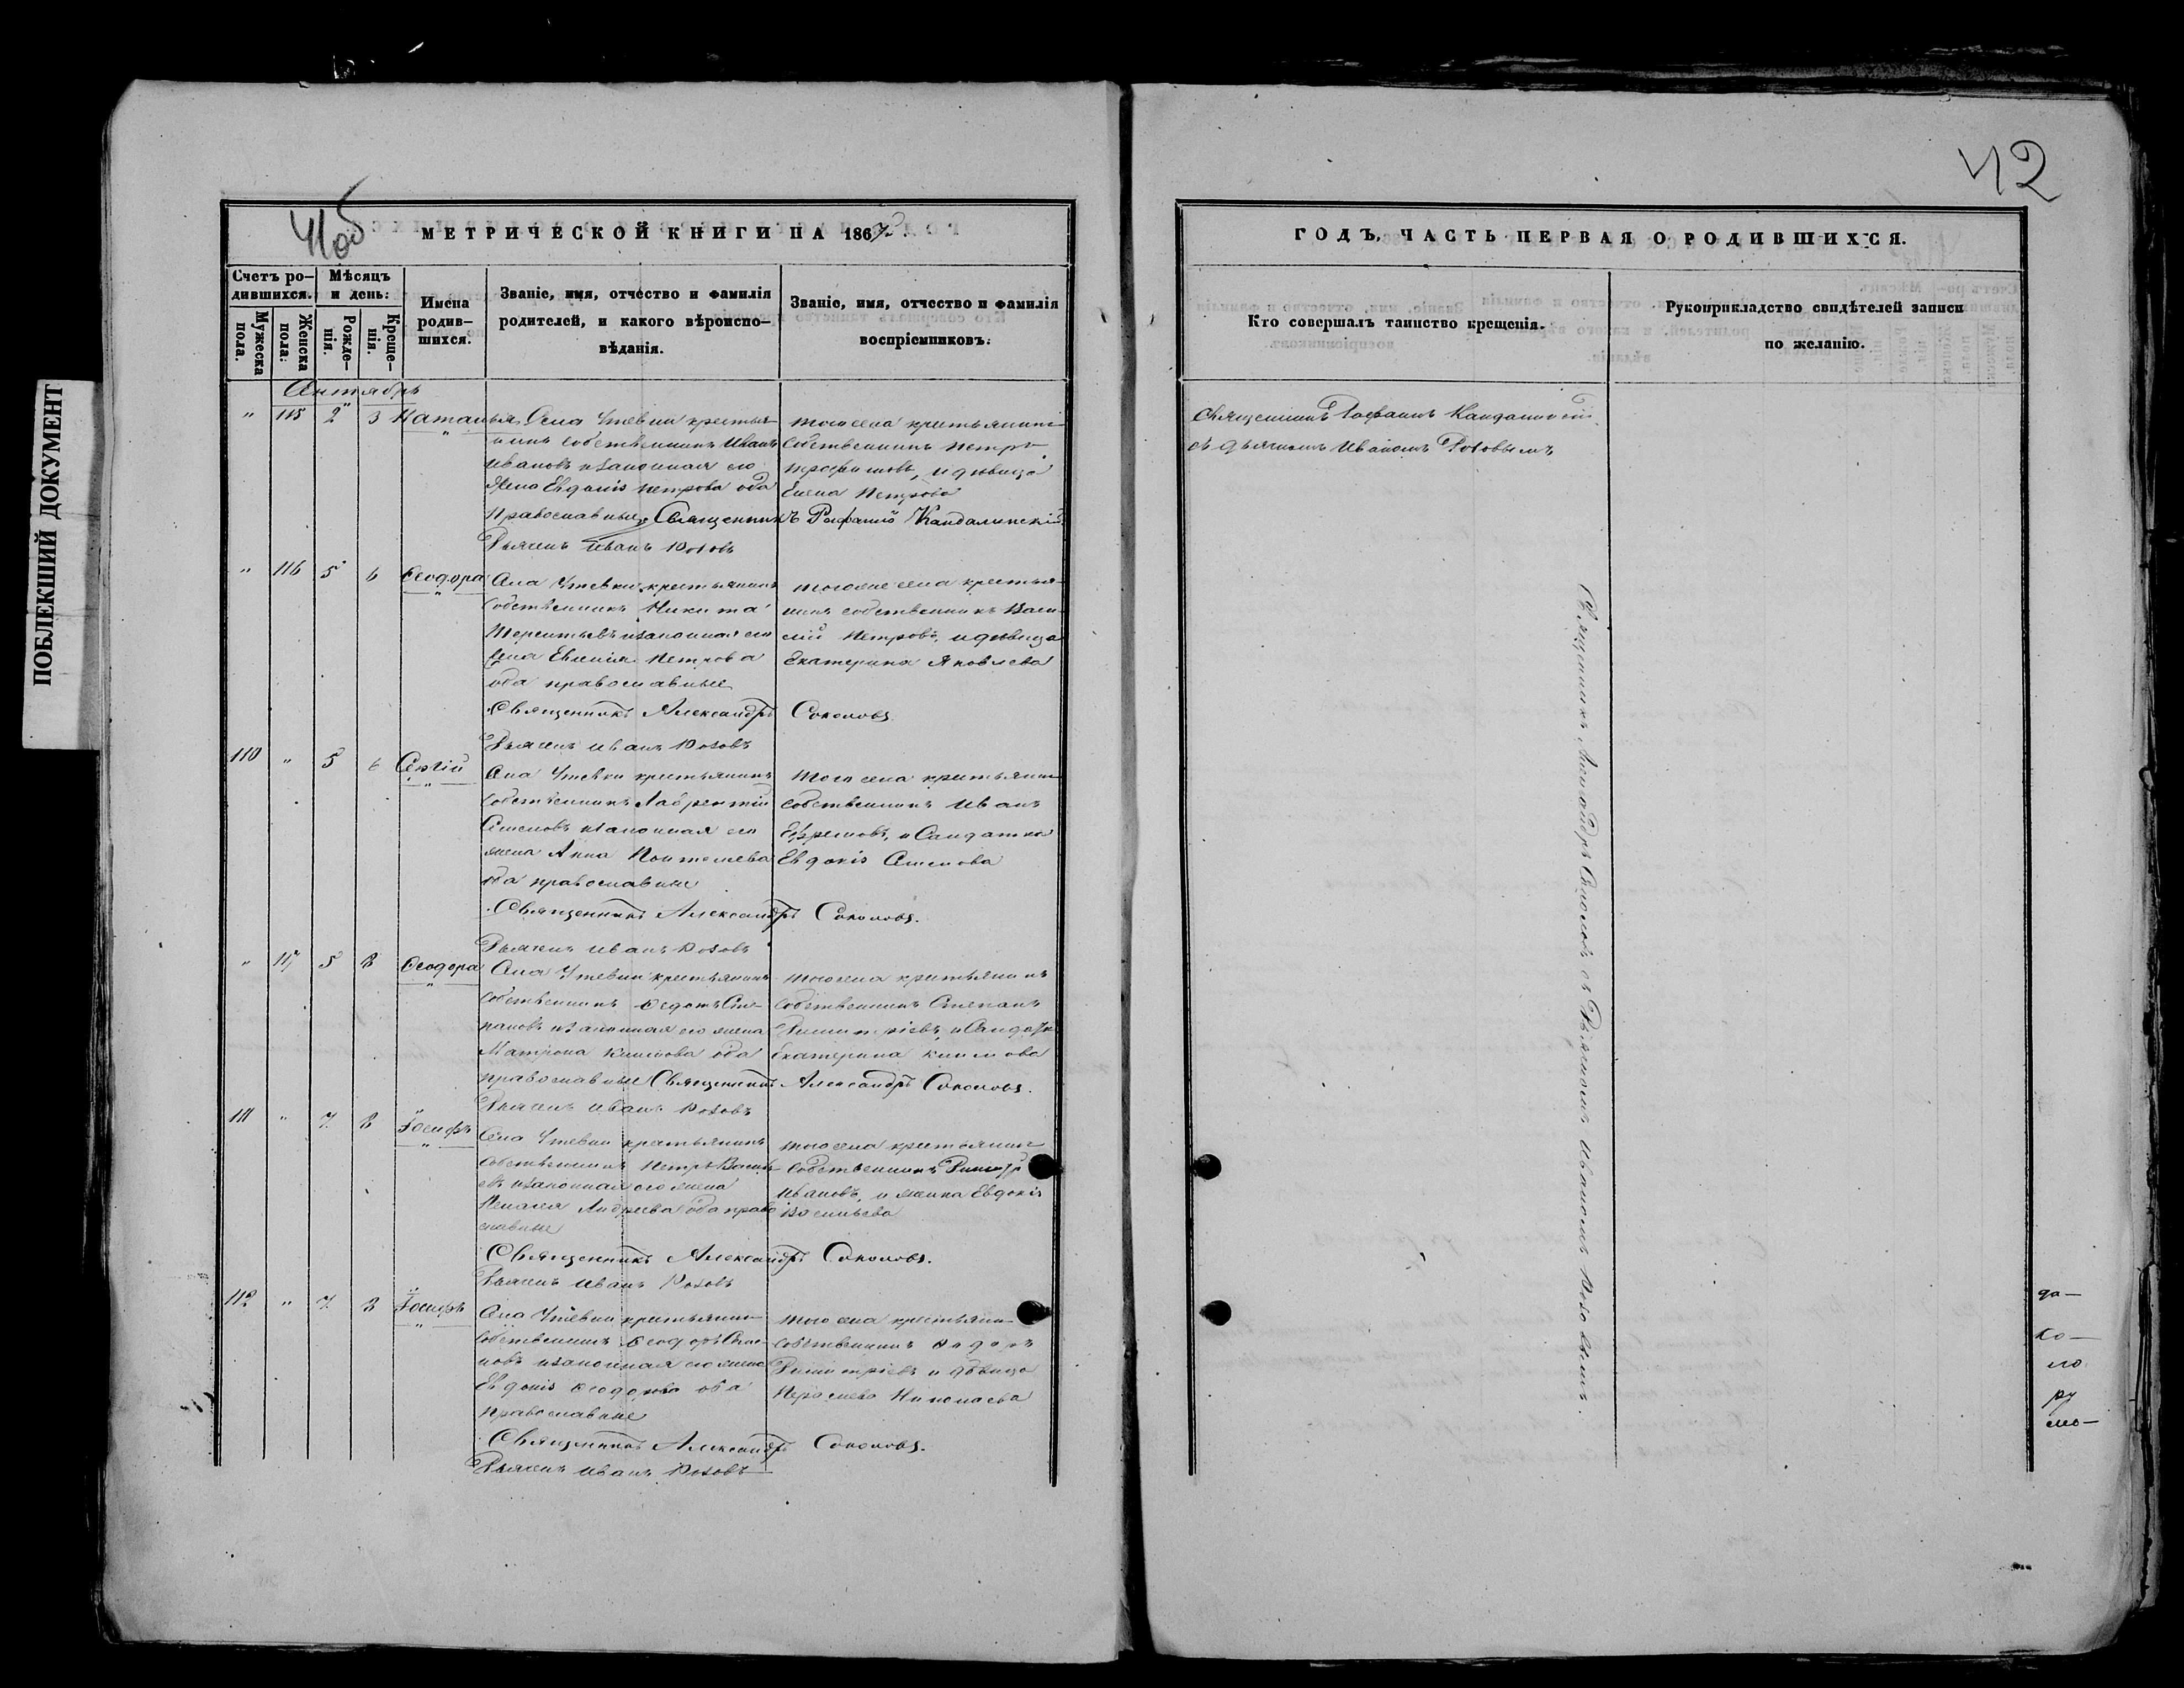 42
41об
МЕТРИЧЕСКОЙ КНИГИ НА 1867
ГОДЪ, ЧАСТЬ ПЕРВАЯ О РОДИВШИХСЯ.
ПОБЛЕКШИЙ ДОКУМЕНТ
Счетъ ро-
дившихся.
Мужеска пола.
Женска пола.
Мѣсяцъ
и день:
Рожде-
нія.
Креще-
нія.
Имена
родив-
шихся.
Званіе, имя, отчество и фамилія
родителей, и какого вѣроиспо-
вѣданія.
Званіе, имя, отчество и фамилія
воспріемниковъ.
Кто совершалъ таинство крещенія.
Рукоприкладство свидѣтелей записи
по желанію.
" 115 2 3 Наталья
Села Утевки крестья-
нинъ собственникъ Иванъ
Ивановъ и законная его
жена Евдокія Петрова оба
православные
того села крестьянинъ
собственникъ Петръ
и дѣвица
Елена Петрова
Священникъ Кандалинскій
Дьячекъ Иванъ Розовъ
" 116 5 6 Ѳеодора
Села Утевки крестьянинъ
собственникъ Никита
Терентьевъ и законная его
жена Евгенія Петрова
оба православные
крестья-
нинъ собственникъ Васи-
лій Петровъ, и дѣвица
Екатерина Яковлева
Священникъ Александръ Соколовъ
Дьячекъ Иванъ Розовъ
110 " 5 6 Сергій
Села Утевки крестьянинъ
собственникъ Лаврентій
Семеновъ и законная его
жена Анна Пантелеева
оба православные
того села крестьянинъ
собственникъ Иванъ
Ефремовъ, и Солдатка
Евдокія Семенова
Священникъ Александръ Соколовъ.
Дьячекъ Иванъ Розовъ
" 117 5 8 Ѳеодора
Села Утевки крестьянинъ
собственникъ Ѳедотъ Сте-
пановъ и законная его жена
Матрона Климова оба
православные
того села крестьянинъ
собственникъ Степанъ
Димитріевъ, и Солдатка
Екатерина Климова
Священникъ Александръ Соколовъ.
Дьячекъ Иванъ Розовъ
111 " 7 8 Іосифъ
Села Утевки крестьянинъ
собственникъ Петръ Василь-
евъ и законная его жена
Пелагея Андреева оба право
славные
того села крестьянинъ
собственникъ Димитр
Ивановъ, и женка Евдокія
Васильева
Священникъ Александръ Соколовъ.
Дьячекъ Иванъ Розовъ
112 " 7 8 Іосифъ
Села Утевки крестьянинъ
собственникъ Ѳеодоръ
и законная его жена
Евдокія Ѳеодорова оба
православные
того села крестьянинъ
собственникъ
Димитріевъ и дѣвица
Николаева
Священникъ Александръ Соколовъ.
Дьячекъ Иванъ Розовъ
Священникъ Кандалинскій
съ дьячкомъ Иваномъ Розовымъ
Священникъ Александръ Соколовъ съ Дьячкомъ Иваномъ Розовымъ.
да-
ко-
ло
ру